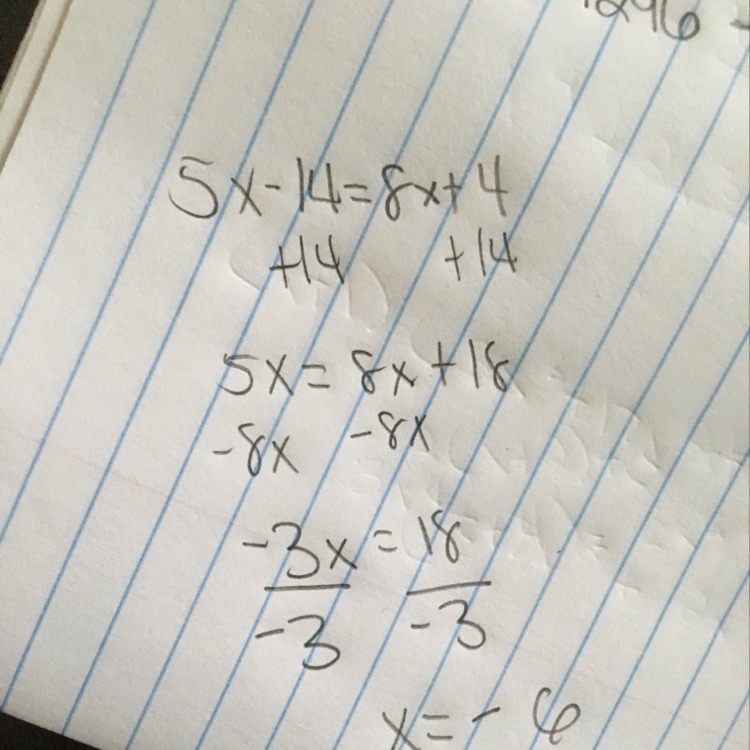 5x-14=8x+4
+14 +14
5x=8x+18
-8x -8x
-3x=18
-3 -3
x=-6